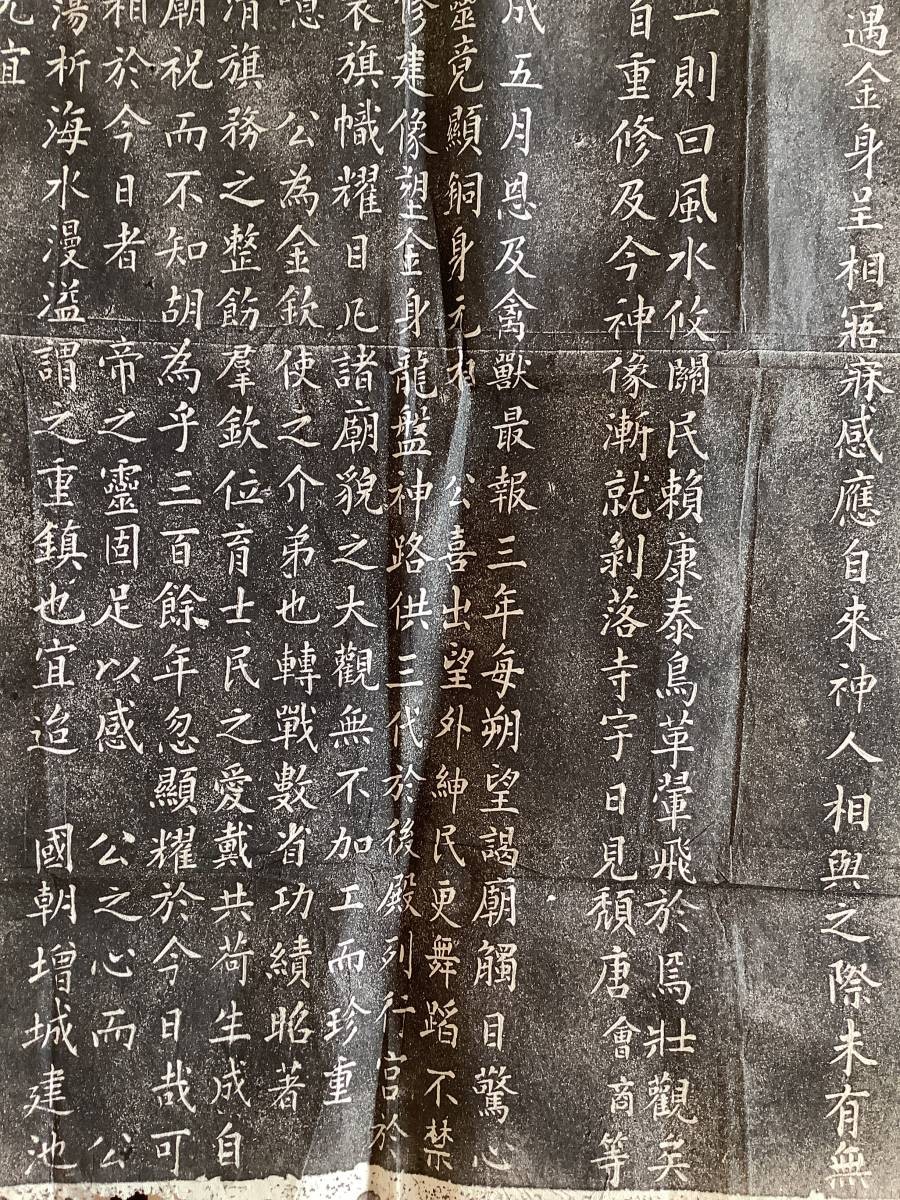 遇金身呈相寤寐感應自來神人相與之際未有無
一則曰風水攸關民賴康泰鳥革翬飛於焉壯觀矣
自重修及今神像漸就剝落寺宇日見頹唐會商等
成五月恩及禽獸最報三年每朔望謁廟觸目驚心
靈竟顯銅身元相　公喜出望外紳民更舞蹈不禁
修建像塑金身龍盤神路供三代於後殿列行宮於
衣旗幟耀目凡諸廟貌之大觀無不加工而珍重
憶　公為金欽使之介弟也轉戰數省功績昭著
旗務之整飭羣欽位育士民之愛戴共荷生成自
廟祝而不知胡為乎三百餘年忽顯耀於今日哉可
相於今日者　帝之靈固足以感　公之心而　公
湯析海水漫溢謂之重鎮也宜迨　國朝增城建池
宜